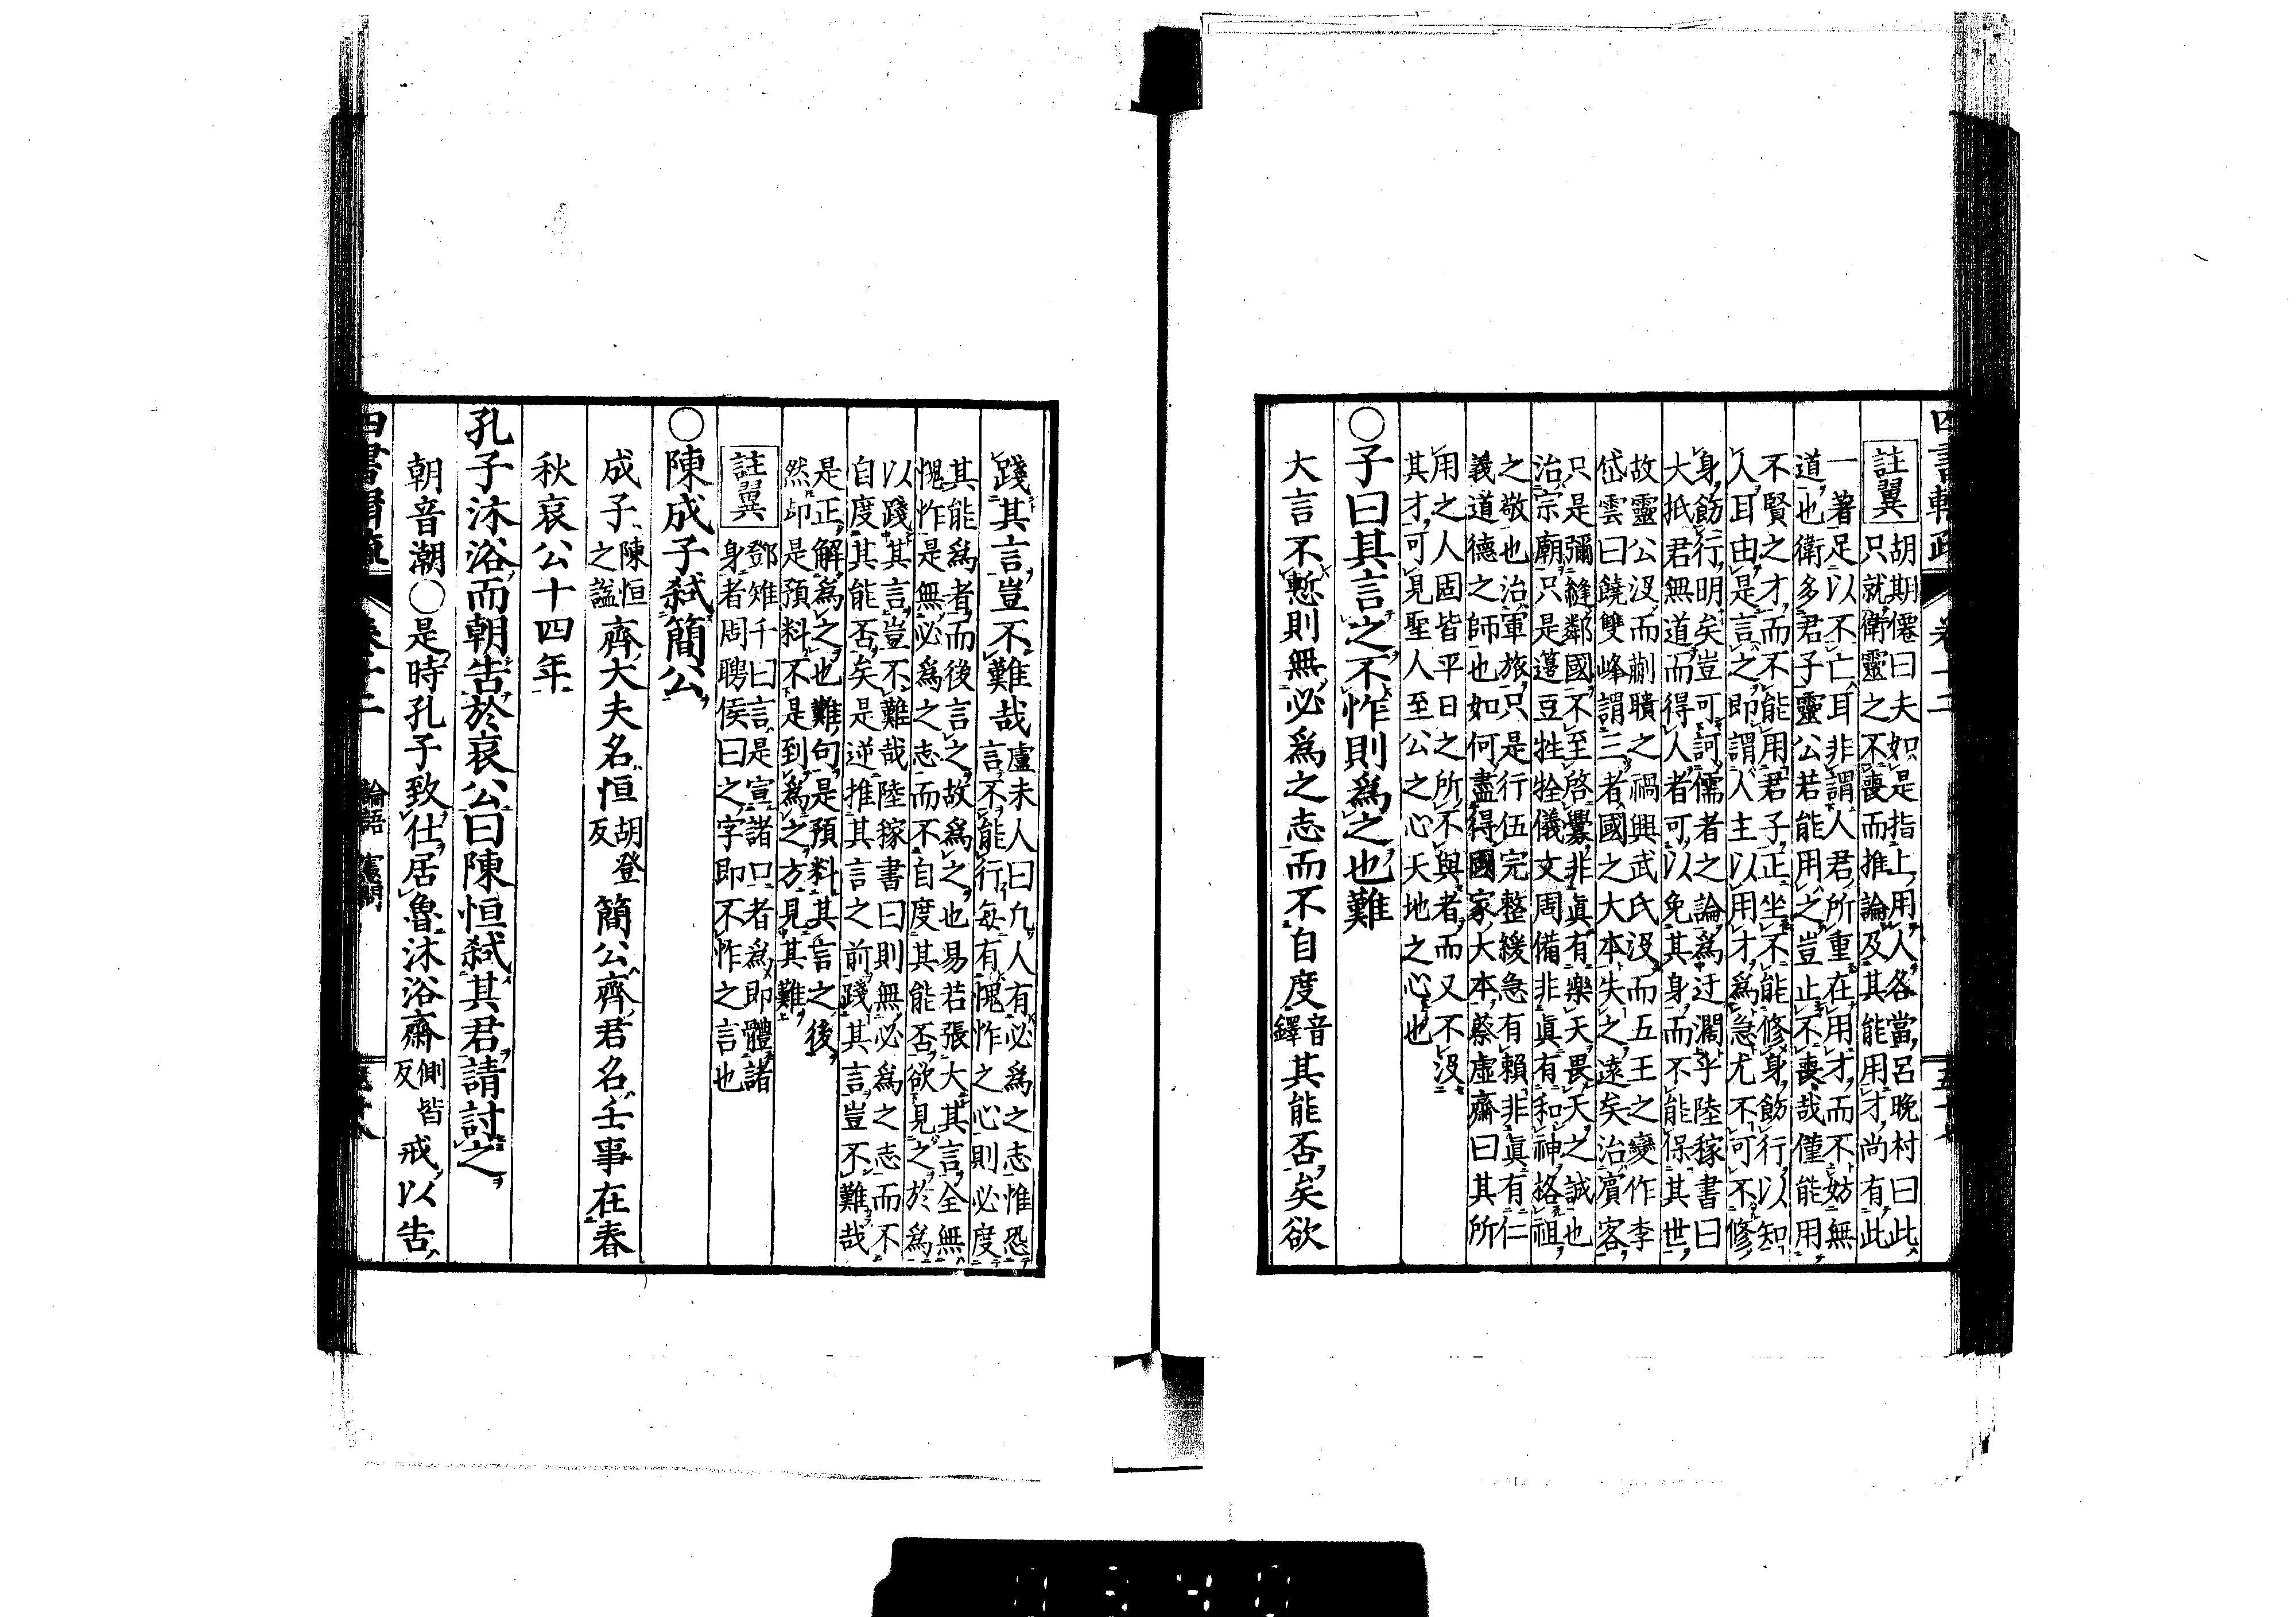 四書輯疏 卷十二 五十七
註翼
胡期僊曰夫如是指上用人各當呂晚村曰此
只就衛靈之不喪而推論及其能用才尚有此
一著足以不亡耳非謂人君所重在用才而不妨無
道也衛多君子靈公若能用之豈止不喪哉僅能用
不賢之才而不能用君子正坐不能修身飭行以知
人耳由是言之即謂人主以用才爲急尤不可不修
身飭行明矣豈可訶儒者之論爲迂濶乎陸稼書曰
大抵君無道而得人者可以免其身而不能保其世
故靈公沒而蒯聵之禍興武氏沒而五王之變作李
岱雲曰饒雙峰謂三者國之大本失之遠矣治賓客
只是彌縫鄰國不至啓釁非眞有樂天畏天之誠也
治宗廟只是籩豆牲牷儀文周備非眞有和神格祖
之敬也治軍旅只是行伍完整緩急有賴非眞有仁
義道德之師也如何盡得國家大本蔡虛齋曰其所
用之人固皆平日之所不與者而又不沒
其才可見聖人至公之心天地之心也
○子曰其言之不怍則爲之也難
大言不慙則無必爲之志而不自度音鐸其能否矣欲
踐其言豈不難哉
盧未人曰凡人有必爲之志惟恐
言不能行每有愧怍之心則必度
其能爲者而後言之故爲之也易若張大其言全無
愧怍是無必爲之志而不自度其能否欲見之於爲
以踐其言豈不難哉陸稼書曰則無必爲之志而不
自度其能否矣是逆推其言之前踐其言豈不難哉
是正解爲之也難句是預料其言之後
然却是預料不是到爲之方見其難
註翼
鄧雉千曰言是宣諸口者爲即體諸
身者周聘侯曰之字即不怍之言也
○陳成子弒簡公
成子陳恒之諡齊大夫名恒胡登反簡公齊君名壬事在春
秋哀公十四年
孔子沐浴而朝告於哀公曰陳恒弒其君請討之
朝音潮○是時孔子致仕居魯沐浴齋側皆反戒以告
四書輯疏 卷十二 論語 憲問